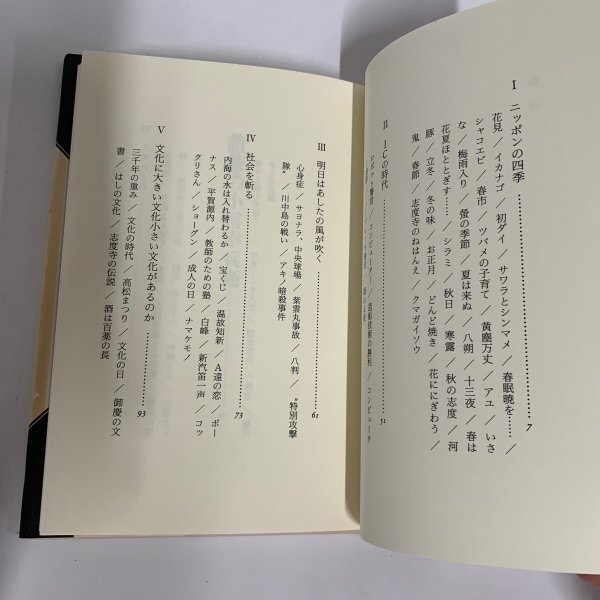 I ニッポンの四季……7
花見／イカナゴ／初ダイ／サワラとシンマメ／春眠暁を……／
シャコエビ／春市／ツバメの子育て／黄塵万丈／アユ／いさ
な／梅雨入り／蛍の季節／夏は来ぬ／八朔／十三夜／春は
花夏ほととぎす……／シラミ／秋日／寒露／秋の志度／河
豚／立冬／冬の味／お正月／どんど焼き／花ににぎわう／
鬼／春節／志度寺のねはんえ／クマガイソウ
II ICの時代……31
ロボット／コンピューター／技術の勝利／コンピュータ
III 明日はあしたの風が吹く……61
心身症／サヨナラ、中央球場／紫雲丸事故／八判／〝特別攻撃
隊〟／川中島の戦い／アキノ暗殺事件
IV 社会を斬る……73
内海の水は入れ替わるか／宝くじ／温故知新／A遠の恋／ボー
ナス／平賀源内／教師のための塾／白峰／新汽笛一声／コッ
クリさん／ショーグン／成人の日／ナマケモノ
V 文化に大きい文化小さい文化があるのか……93
三千年の重み／文化の時代／高松まつり／文化の日／御慶の文
書／はしの文化／志度寺の伝説／酒は百薬の長